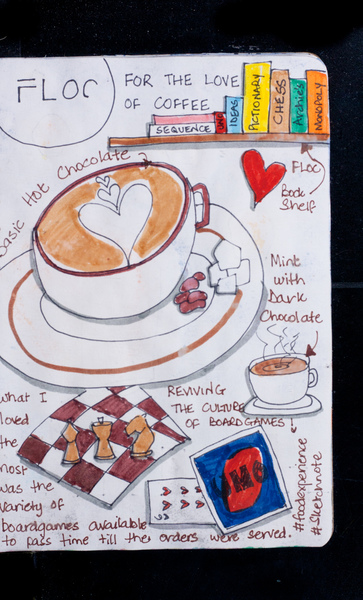 FLOC
FOR THE LOVE
OF COFFEE
SEQUENCE
UNO
IDEAS
PICTIONARY
CHESS
Archies
MONOPOLY
FLOC
Book
Shelf
Basic Hot Chocolate
Mint
with
Dark
Chocolate
REVIVING
THE CULTURE
OF BOARDGAMES!
what I
loved
the
most
was the
variety of
boardgames available
to pass time till the orders were served.
UNO
#foodexperience
#sketchnote